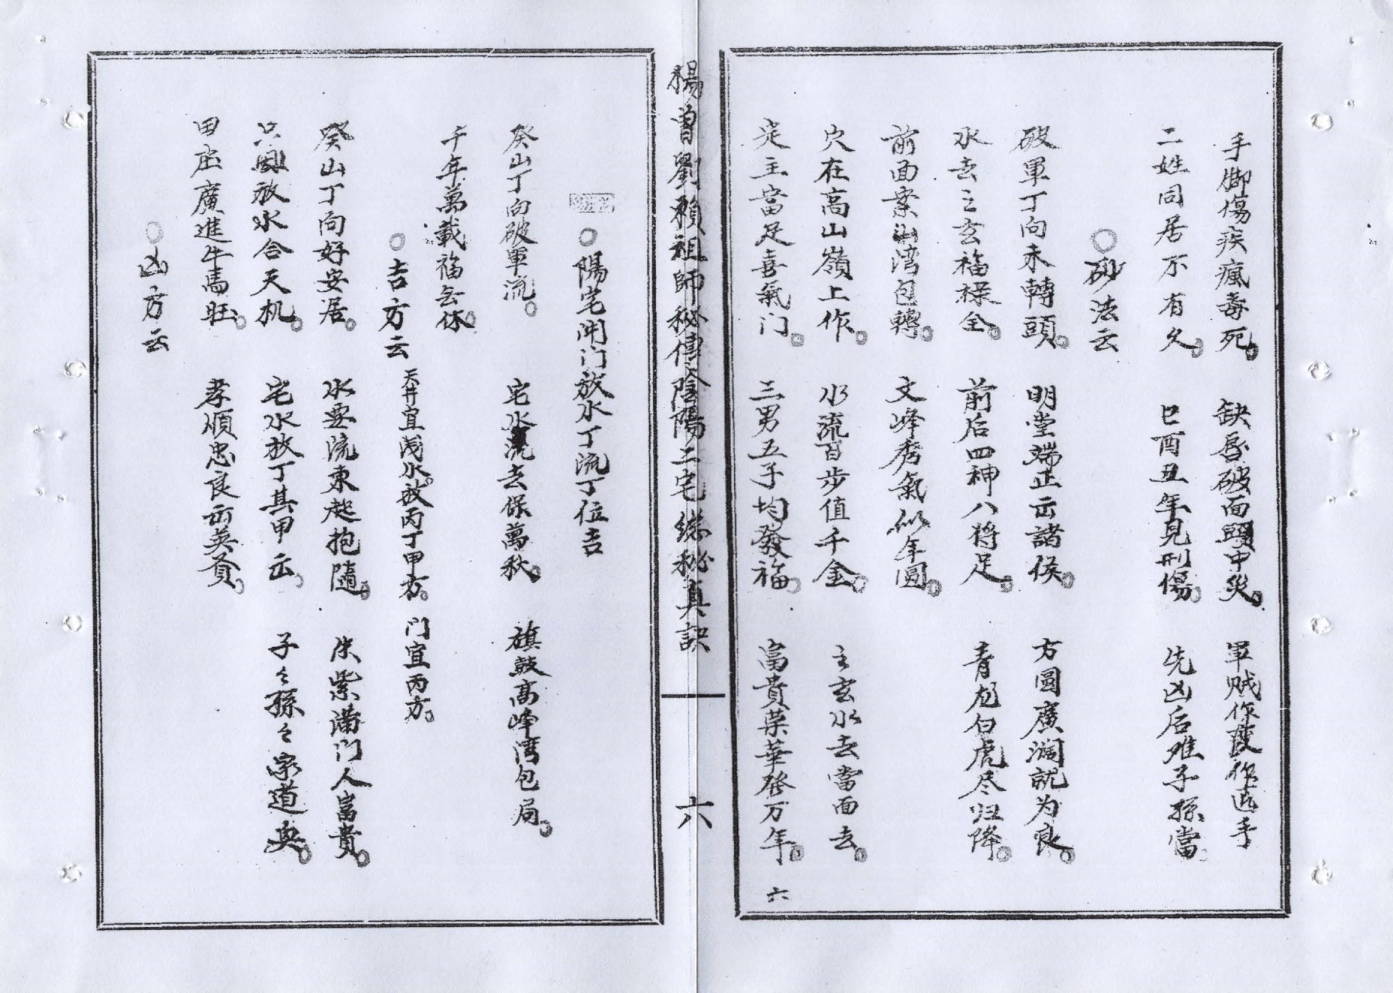 手脚傷疾瘋毒死。缺唇破面頭中災。軍賊作作近手
二姓同居不有久。巳酉丑年見刑傷。先凶后难子孫當。
〇砂法云
破軍丁向未轉頭。明堂端正出諸侯。方圓廣濶就为良。
水去之玄福祿全。前后四神八將足。青龙白虎尽归降。
前面案山湾包轉。文峰秀氣似年圓。
穴在高山嶺上作。水流百步值千金。之玄水去當面去。
定主富足喜氣门。三男五子均發福。富貴荣華發万年。
六
楊曾劉賴祖師秘傳陰陽二宅總秘真訣
六
〇陽宅開门放水丁流丁位吉
癸山丁向破軍流。宅水流去保萬秋。旗鼓高峰湾包局。
千年萬載福無休。
〇吉方云 天井宜浅水。放丙丁甲方。门宜丙方。
癸山丁向好安居。水要流東赴抱隨。朱紫滿门人富貴。
只與放水合天机。宅水放丁其甲出。子々孫々家道興。
田庄廣進牛馬旺。孝順忠良出英賢。
〇凶方云